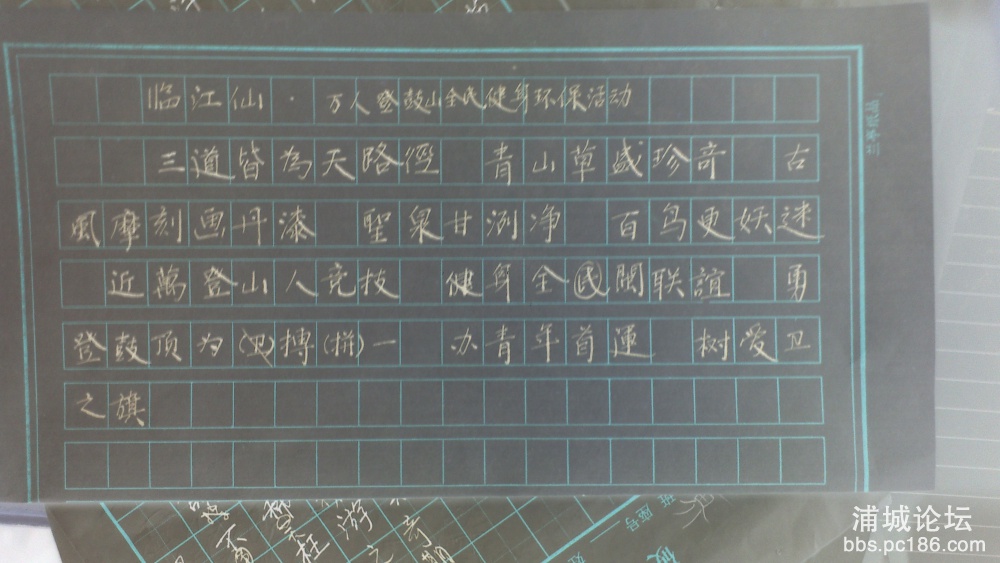 临江仙·万人登鼓山全民健身环保活动
三道皆為天路徑 青山草盛珍奇 古
風摩刻画丹漆 聖泉甘洌净 百鸟更妖迷
近萬登山人竞技 健身全民闔联誼 勇
登鼓顶为(卫)搏(拼)一 办青年首運 树爱卫
之旗
浦城论坛
bbs.pc186.com